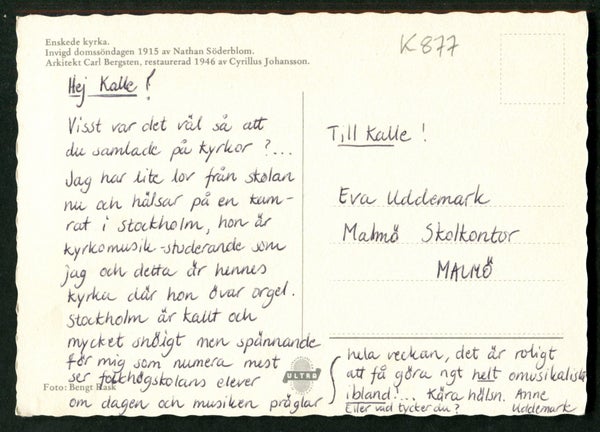 Enskede kyrka.
Invigd domssöndagen 1915 av Nathan Söderblom.
Arkitekt Carl Bergsten, restaurerad 1946 av Cyrillus Johansson.
K877
Hej Kalle!
Visst var det väl så att
du samlade på kyrkor?...
Jag har lite lov från skolan
nu och hälsar på en kam-
rat i Stockholm, hon är
kyrkomusik-studerande som
jag och detta är hennes
kyrka där hon övar orgel.
Stockholm är kallt och
mycket snöigt men spännande
för mig som numera mest
ser folkhögskolans elever
om dagen och musiken präglar
Foto: Bengt Rask
ULTRA
Till Kalle!
Eva Uddemark
Malmö Skolkontor
MALMÖ
hela veckan, det är roligt
att få göra ngt helt omusikaliskt
ibland!... Kära hälsn. Anne
Eller vad tycker du? Uddemark